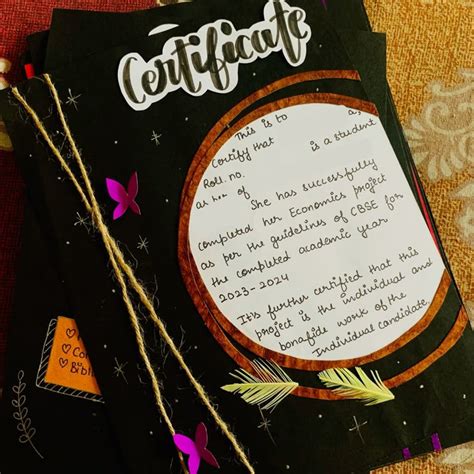 Certificate
This is to
Certify that a,
Roll. no. is a student
as of
She has successfully
completed her Economics project
as per the guidelines of CBSE for
the completed academic year
2023-2024
It's further certified that this
project is the individual and
bonafide work of the
Individual candidate